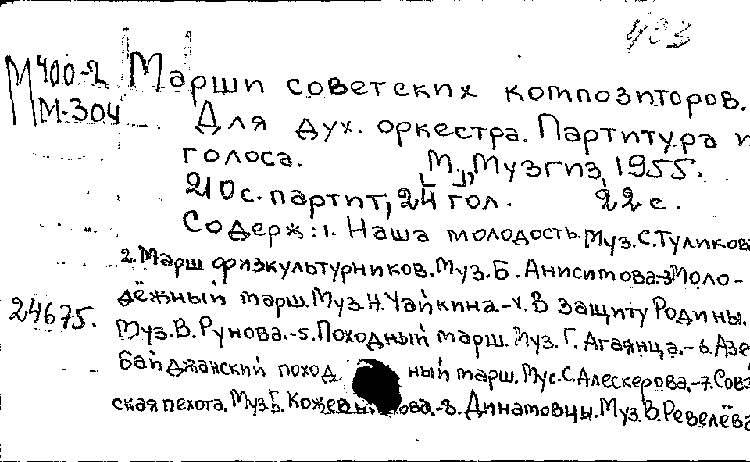 403
М400-2 Марши советских композиторов.
М-304 Для дух. оркестра. Партитура и
голоса. М., Музгиз, 1955.
210с. партит, 24 гол. 22 с.
Содерж: 1. Наша молодость. Муз. С. Туликова
2. Марш физкультурников. Муз. Б. Анисимова.-3 Моло-
дёжный марш. Муз. Н. Чайкина.-4. В защиту Родины.
24675. Муз. В. Рунова.-5. Походный марш. Муз. Г. Агаянца.-6. Азе
байджанский поход ный марш. Мус. С. Алескерова.-7. Сов
ская пехота. Муз. Б. Кожев ова.-8. Динамовцы. Муз. В. Ревелёва